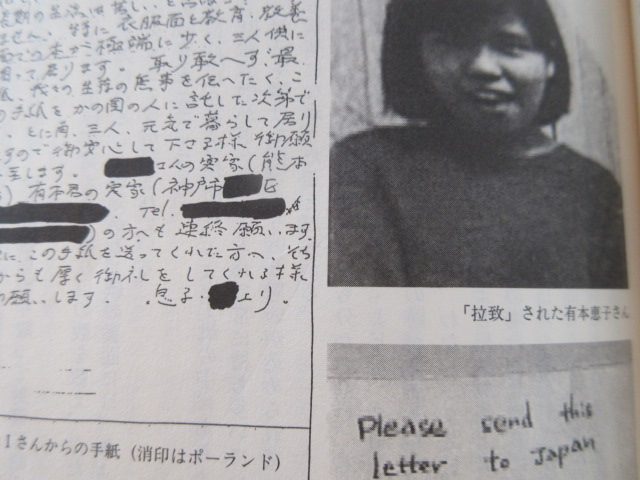 長期の生活は苦しいと言えます。
ません。特に衣服面と教育、教養
面での本が極端に少く、三人供に
困って居ります。取り敢へず、最
低、我々の生存の無事を伝へたく、こ
の手紙をかの国の人に託した次第で
とに角、三人、元気で暮らして居り
ますので御安心して下さる様御願
至します。 さんの実家(熊本
) 有本君の実家(神戸市 区
Tel.
)の方へも連絡願います。
に、この手紙を送ってくれた方へ、そち
からも厚く御礼をしてくれる様
の願いします。 息子・ より。
Iさんからの手紙(消印はポーランド)
「拉致」された有本恵子さん
Please send this
letter to Japan